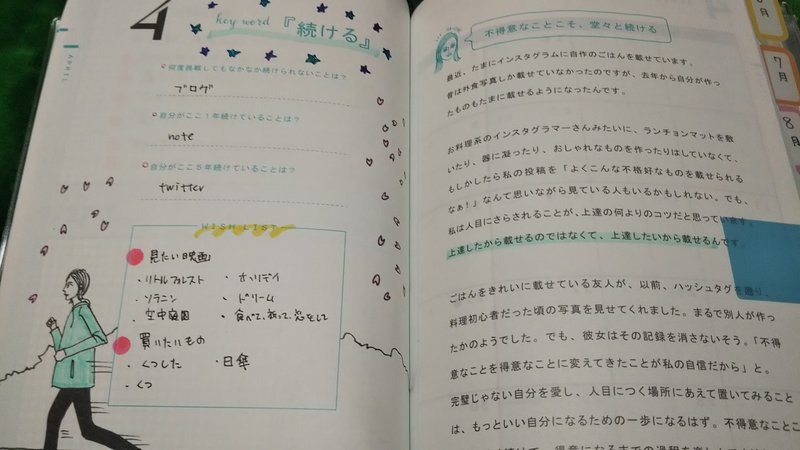 4
key word 『続ける』
APRIL
何度挑戦してもなかなか続けられないことは?
ブログ
自分がここ1年続けていることは?
note
自分がここ5年続けていることは?
twitter
WISH LIST
見たい映画
・リトルフォレスト ・ホリデイ
・ソラニン ・ドリーム
・空中庭園 ・食べて、祈って、恋をして
買いたいもの
・くつした ・日傘
・くつ
不得意なことこそ、堂々と続ける
最近、たまにインスタグラムに自作のごはんを載せています。
昔は外食写真しか載せていなかったのですが、去年から自分が作っ
たものもたまに載せるようになったんです。
お料理系のインスタグラマーさんみたいに、ランチョンマットを敷
いたり、器に凝ったり、おしゃれなものを作ったりはしていなくて、
もしかしたら私の投稿を「よくこんな不格好なものを載せられる
なぁ!」なんて思いながら見ている人もいるかもしれない。でも、
私は人目にさらされることが、上達の何よりのコツだと思っています。
上達したから載せるのではなくて、上達したいから載せるんです。
ごはんをきれいに載せている友人が、以前、ハッシュタグを遡り、
料理初心者だった頃の写真を見せてくれました。まるで別人が作っ
たかのようでした。でも、彼女はその記録を消さないそう。「不得
意なことを得意なことに変えてきたことが私の自信だから」と。
完璧じゃない自分を愛し、人目につく場所にあえて置いてみること
は、もっといい自分になるための一歩になるはず。不得意なことこ
月
7月
8月